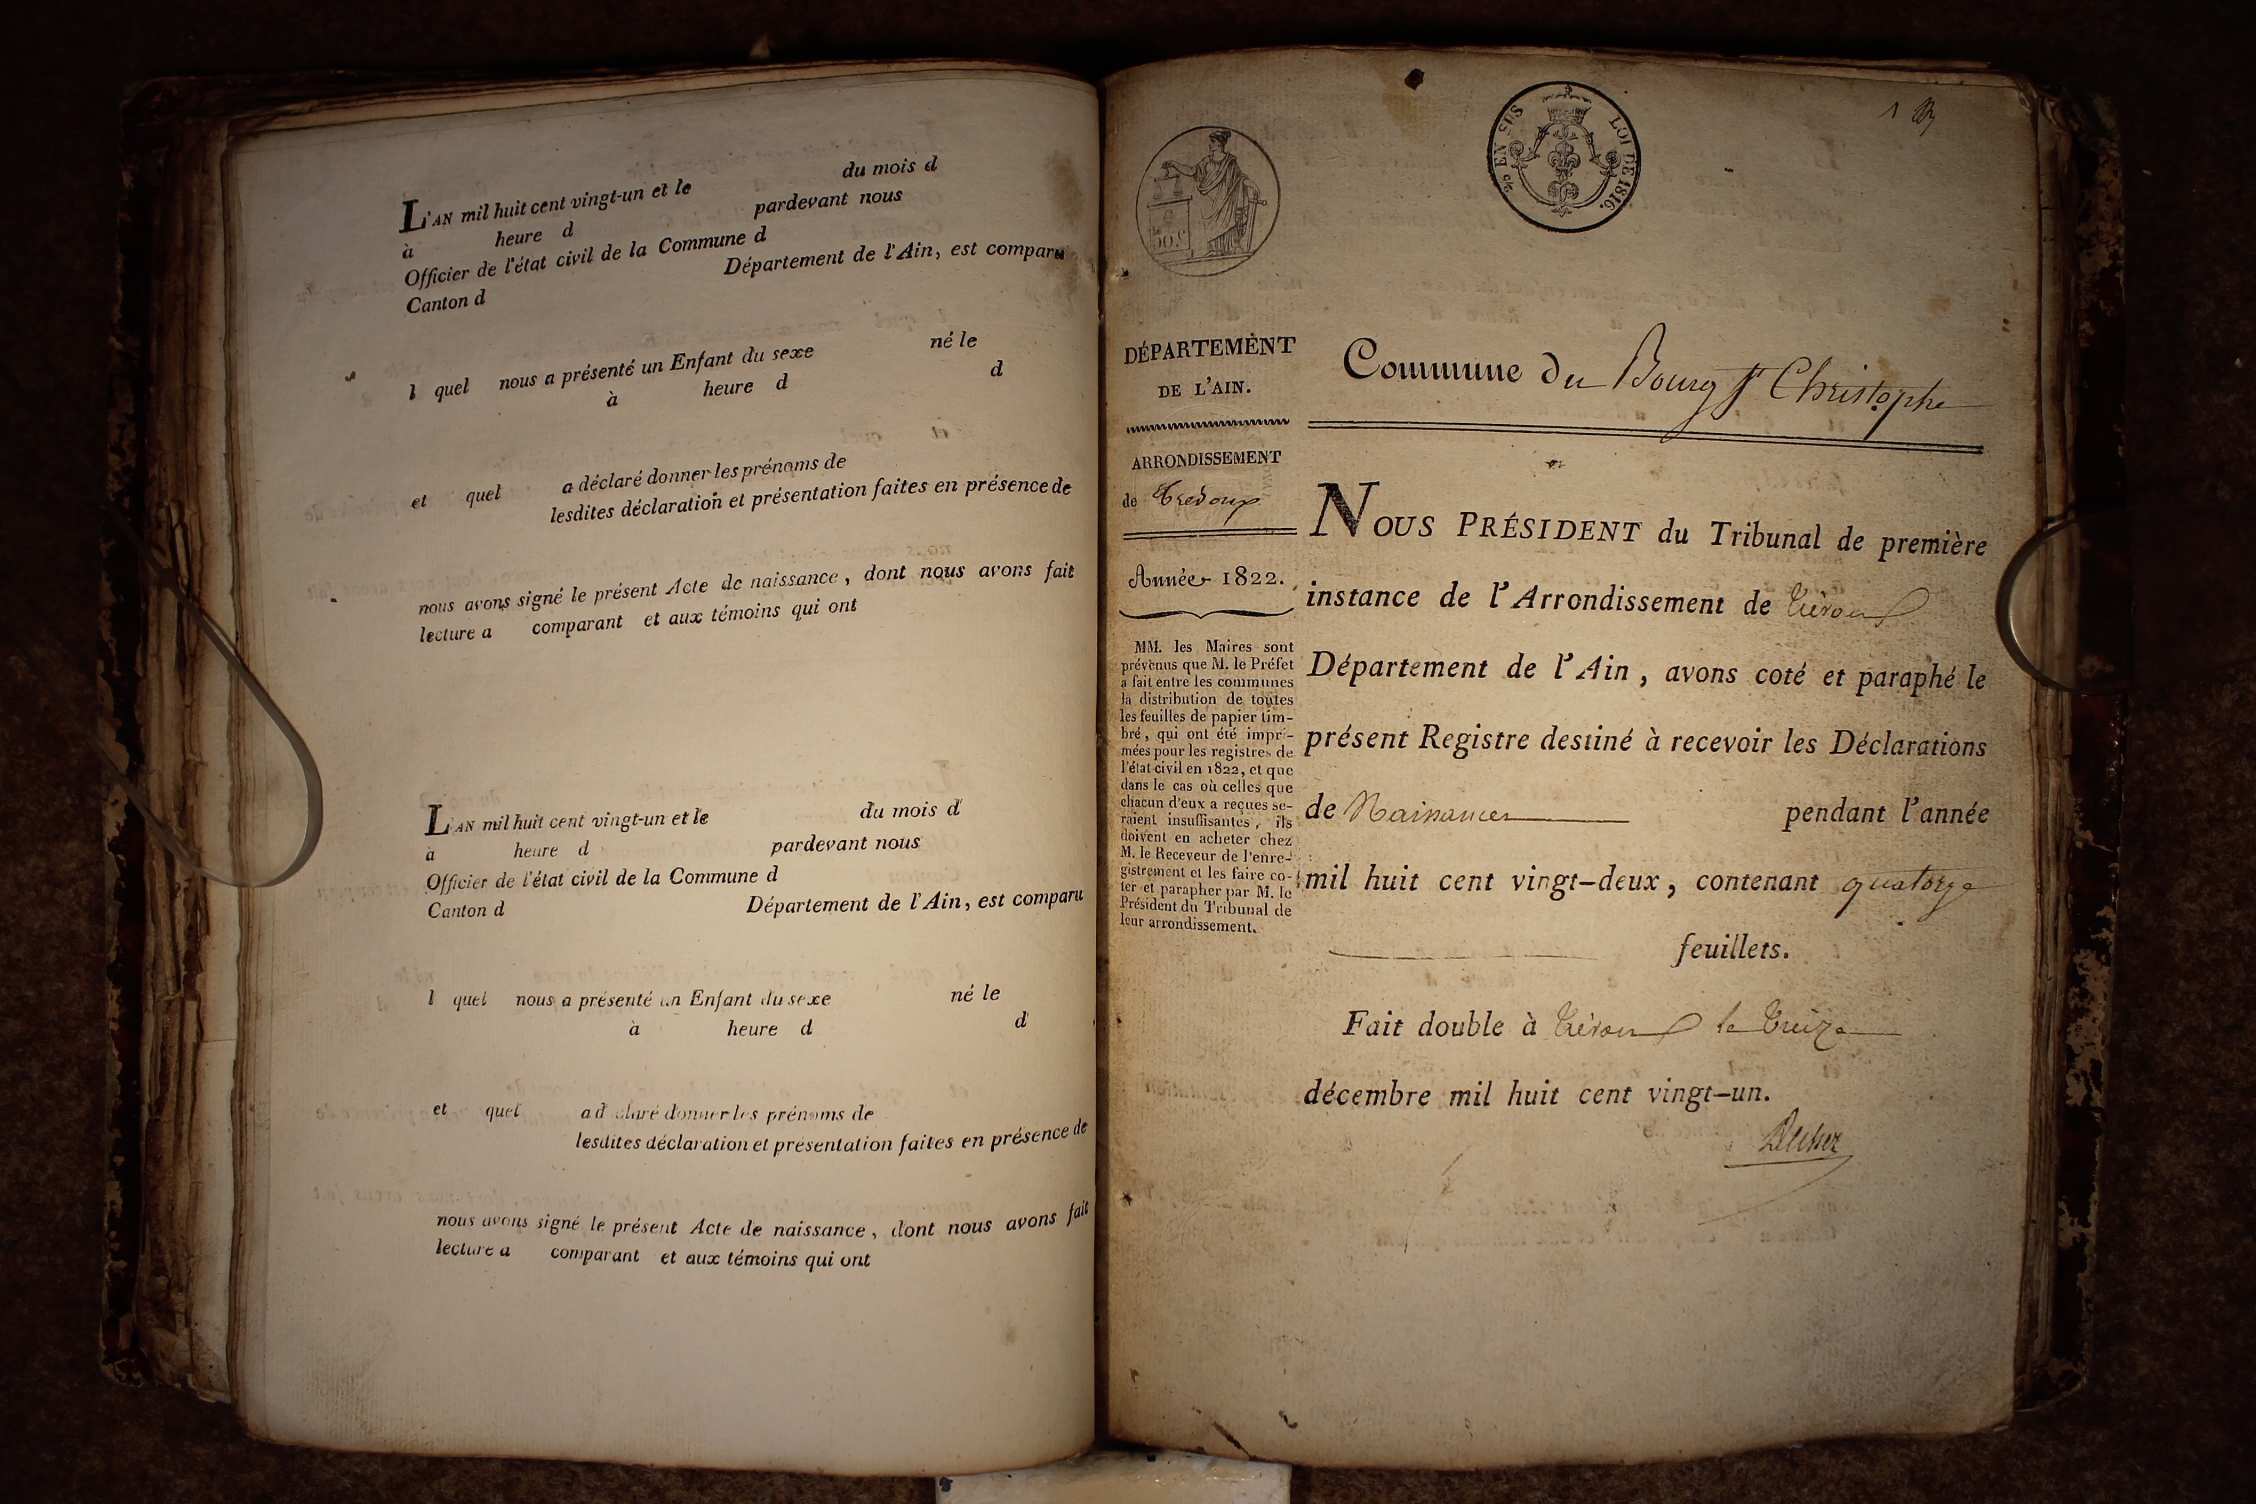 L'AN mil huit cent vingt-un et le du mois d
à heure d pardevant nous
Officier de l'état civil de la Commune d
Canton d Département de l'Ain, est comparu
l quel nous a présenté un Enfant du sexe né le
à heure d d
et quel a déclaré donner les prénoms de
lesdites déclaration et présentation faites en présence de
nous avons signé le présent Acte de naissance, dont nous avons fait
lecture a comparant et aux témoins qui ont
L'AN mil huit cent vingt-un et le du mois d
à heure d pardevant nous
Officier de l'état civil de la Commune d
Canton d Département de l'Ain, est comparu
l quel nous a présenté un Enfant du sexe né le
à heure d d
et quel a déclaré donner les prénoms de
lesdites déclaration et présentation faites en présence de
nous avons signé le présent Acte de naissance, dont nous avons fait
lecture a comparant et aux témoins qui ont
EN SUS LOI DE 1816.
1
DÉPARTEMENT
DE L'AIN.
ARRONDISSEMENT
de Trevoux
Année 1822.
MM. les Maires sont
prévenus que M. le Préfet
a fait entre les communes
la distribution de toutes
les feuilles de papier tim-
bré, qui ont été impri-
mées pour les registres de
l'état civil en 1822, et que
dans le cas où celles que
chacun d'eux a reçues se-
raient insuffisantes, ils
doivent en acheter chez
M. le Receveur de l'enre-
gistrement et les faire co-
ter et parapher par M. le
Président du Tribunal de
leur arrondissement.
Commune du Bourg St Christophe
NOUS PRÉSIDENT du Tribunal de première
instance de l'Arrondissement de Trévoux
Département de l'Ain, avons coté et paraphé le
présent Registre destiné à recevoir les Déclarations
de Naissances pendant l'année
mil huit cent vingt-deux, contenant quatorze
feuillets.
Fait double à Trévoux le treize
décembre mil huit cent vingt-un.